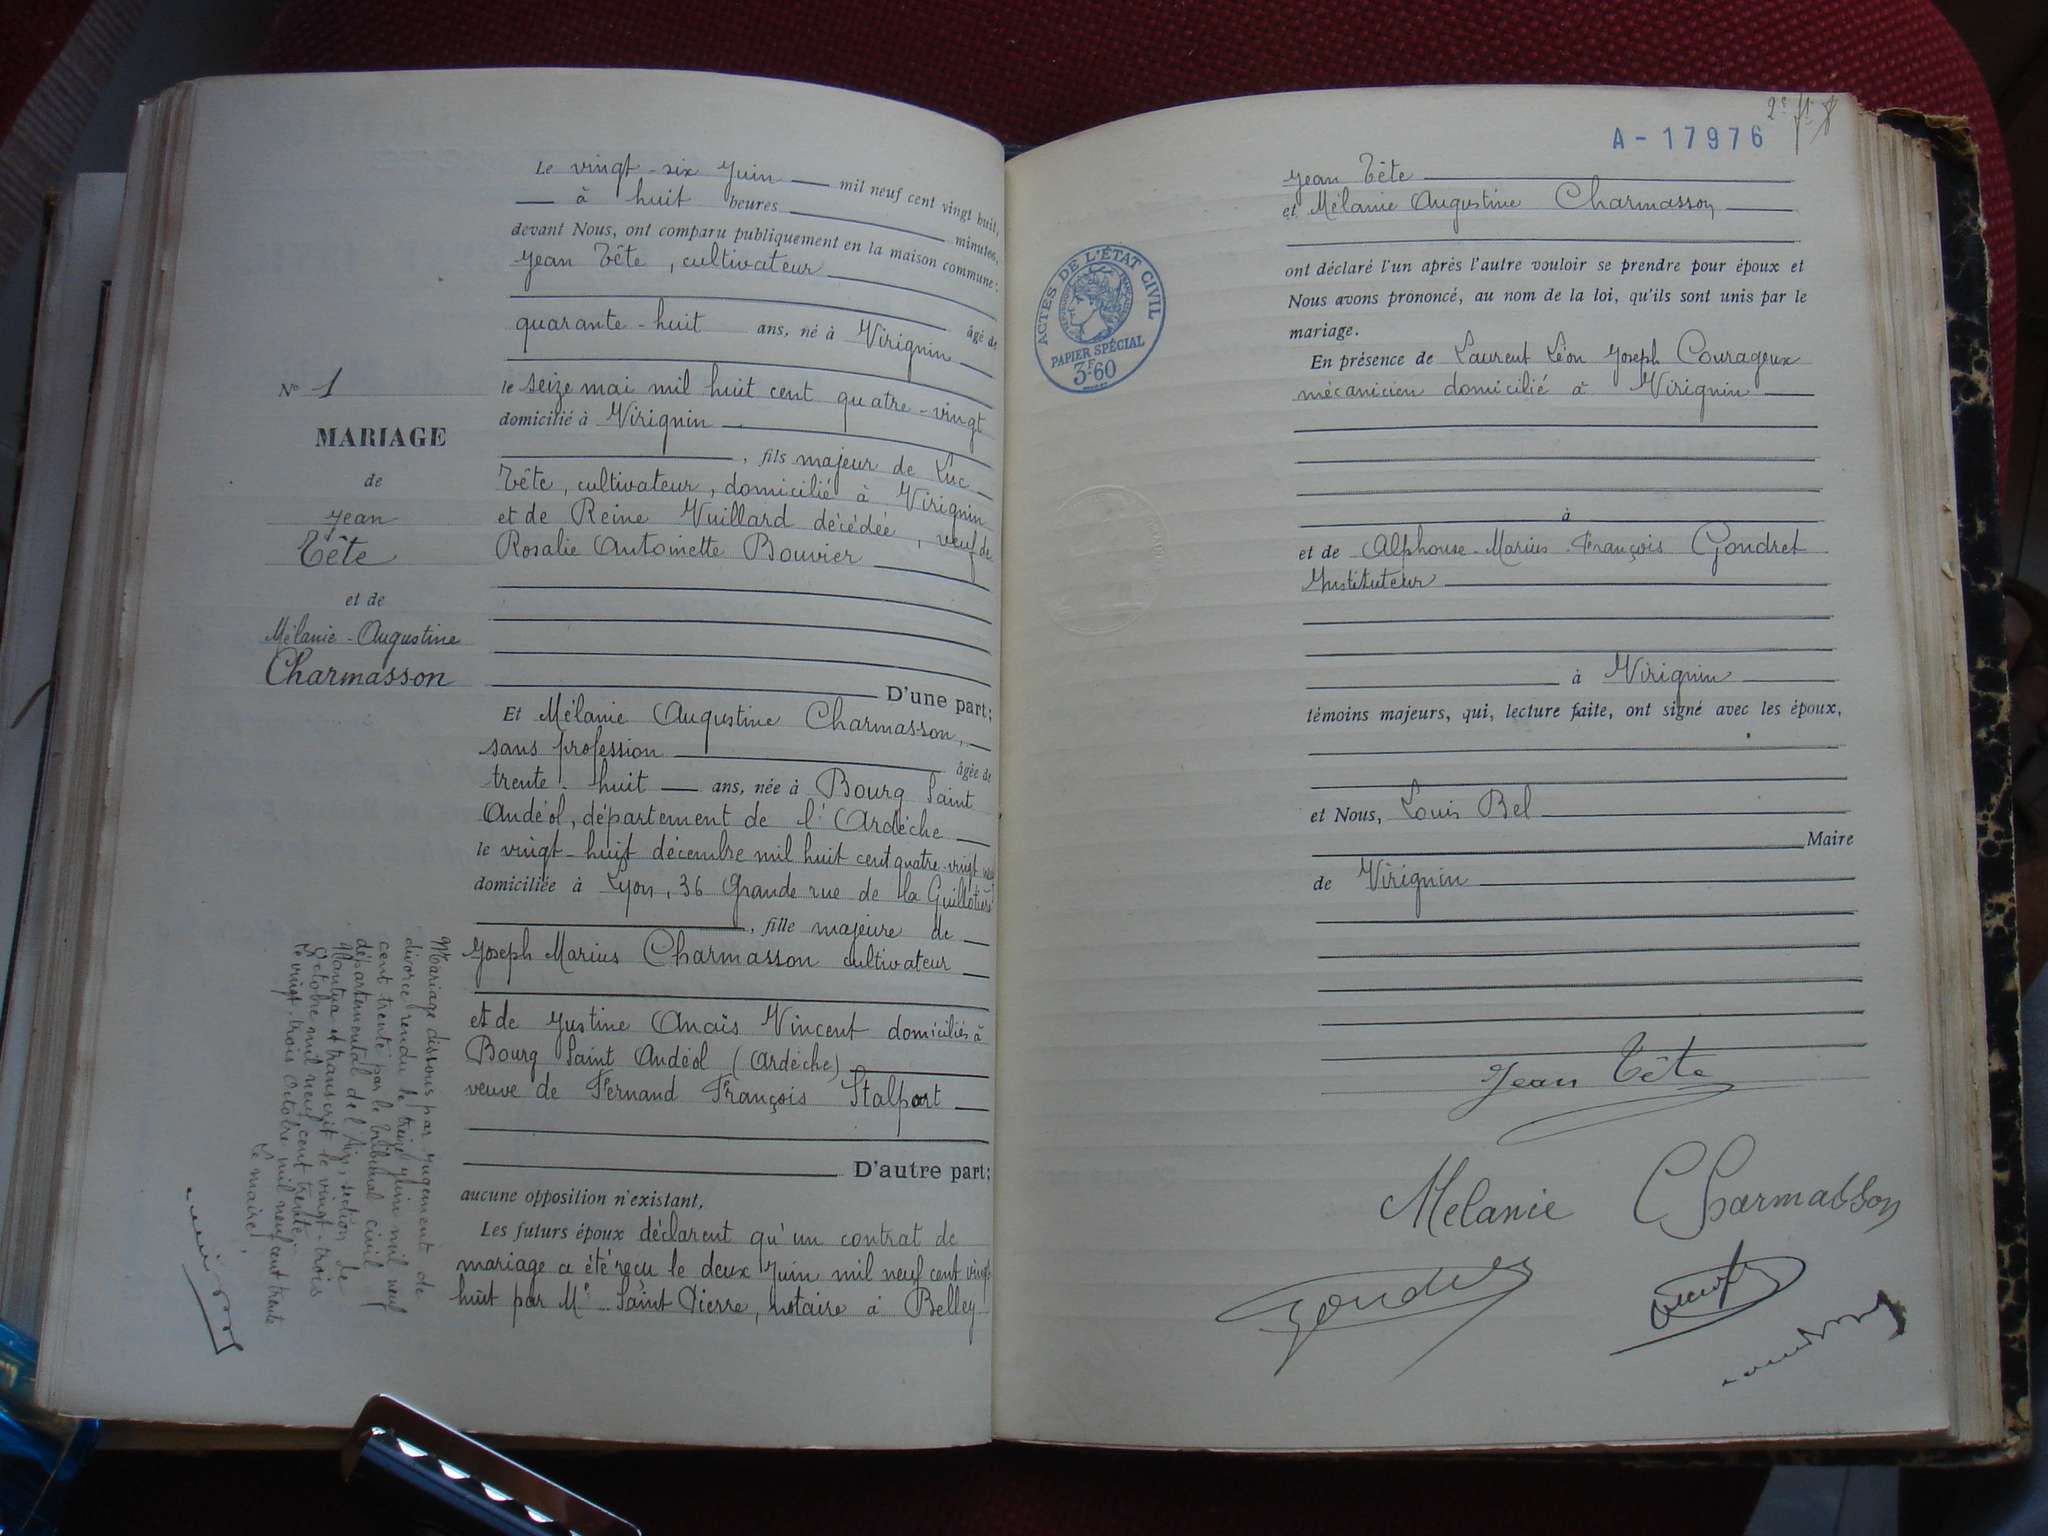 Nº 1
MARIAGE
de
Jean
Tête
et de
Mélanie-Augustine
Charmasson
Mariage dissous par jugement de
divorce rendu le treize juin mil neuf
cent trente par le tribunal civil
départemental de l'Ain, section de
Nantua et transcrit le vingt-trois
Octobre mil neuf cent trente.
Le vingt-trois Octobre mil neuf cent trente
Le maire,
Le vingt-six Juin mil neuf cent vingt huit,
à huit heures minutes,
devant Nous, ont comparu publiquement en la maison commune:
Jean Tête, cultivateur
âgé de
quarante-huit ans, né à Virignin
le seize mai mil huit cent quatre-vingt
domicilié à Virignin
, fils majeur de Luc
Tête, cultivateur, domicilié à Virignin
et de Reine Vuillard décédée, veuf de
Rosalie Antoinette Bouvier
D'une part;
Et Mélanie Augustine Charmasson,
sans profession âgée de
trente-huit ans, née à Bourg Saint
Andéol, département de l'Ardèche
le vingt-huit décembre mil huit cent quatre-vingt neuf
domiciliée à Lyon, 36 Grande rue de la Guillotière
, fille majeure de
Joseph Marius Charmasson cultivateur
et de Justine Anaïs Vincent domiciliés à
Bourg Saint Andéol (Ardèche)
veuve de Fernand François Stalport
D'autre part;
aucune opposition n'existant,
Les futurs époux déclarent qu'un contrat de
mariage a été reçu le deux Juin mil neuf cent vingt
huit par Me Saint Pierre, notaire à Belley
2e
A-17976
ACTES DE L'ÉTAT CIVIL
PAPIER SPÉCIAL
3F60
Jean Tête
et Mélanie Augustine Charmasson
ont déclaré l'un après l'autre vouloir se prendre pour époux et
Nous avons prononcé, au nom de la loi, qu'ils sont unis par le
mariage.
En présence de Laurent Léon Joseph Courageux
mécanicien domicilié à Virignin
à
et de Alphonse-Marius-François Gondret
Instituteur
à Virignin
témoins majeurs, qui, lecture faite, ont signé avec les époux,
et Nous, Louis Bel
Maire
de Virignin
Jean Tête
Mélanie Charmasson
Gondret